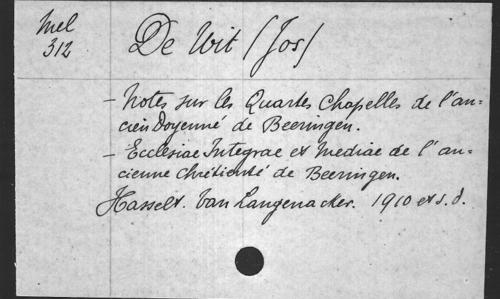 Mel
312
De Wit (Jos)
- Notes sur les Quartes Chapelles de l'an=
cien Doyenné de Beeringen.
- Ecclesiae Integrae et Mediae de l'an=
cienne chrétienté de Beeringen.
Hasselt. Van Langenacker. 1910 et s.d.